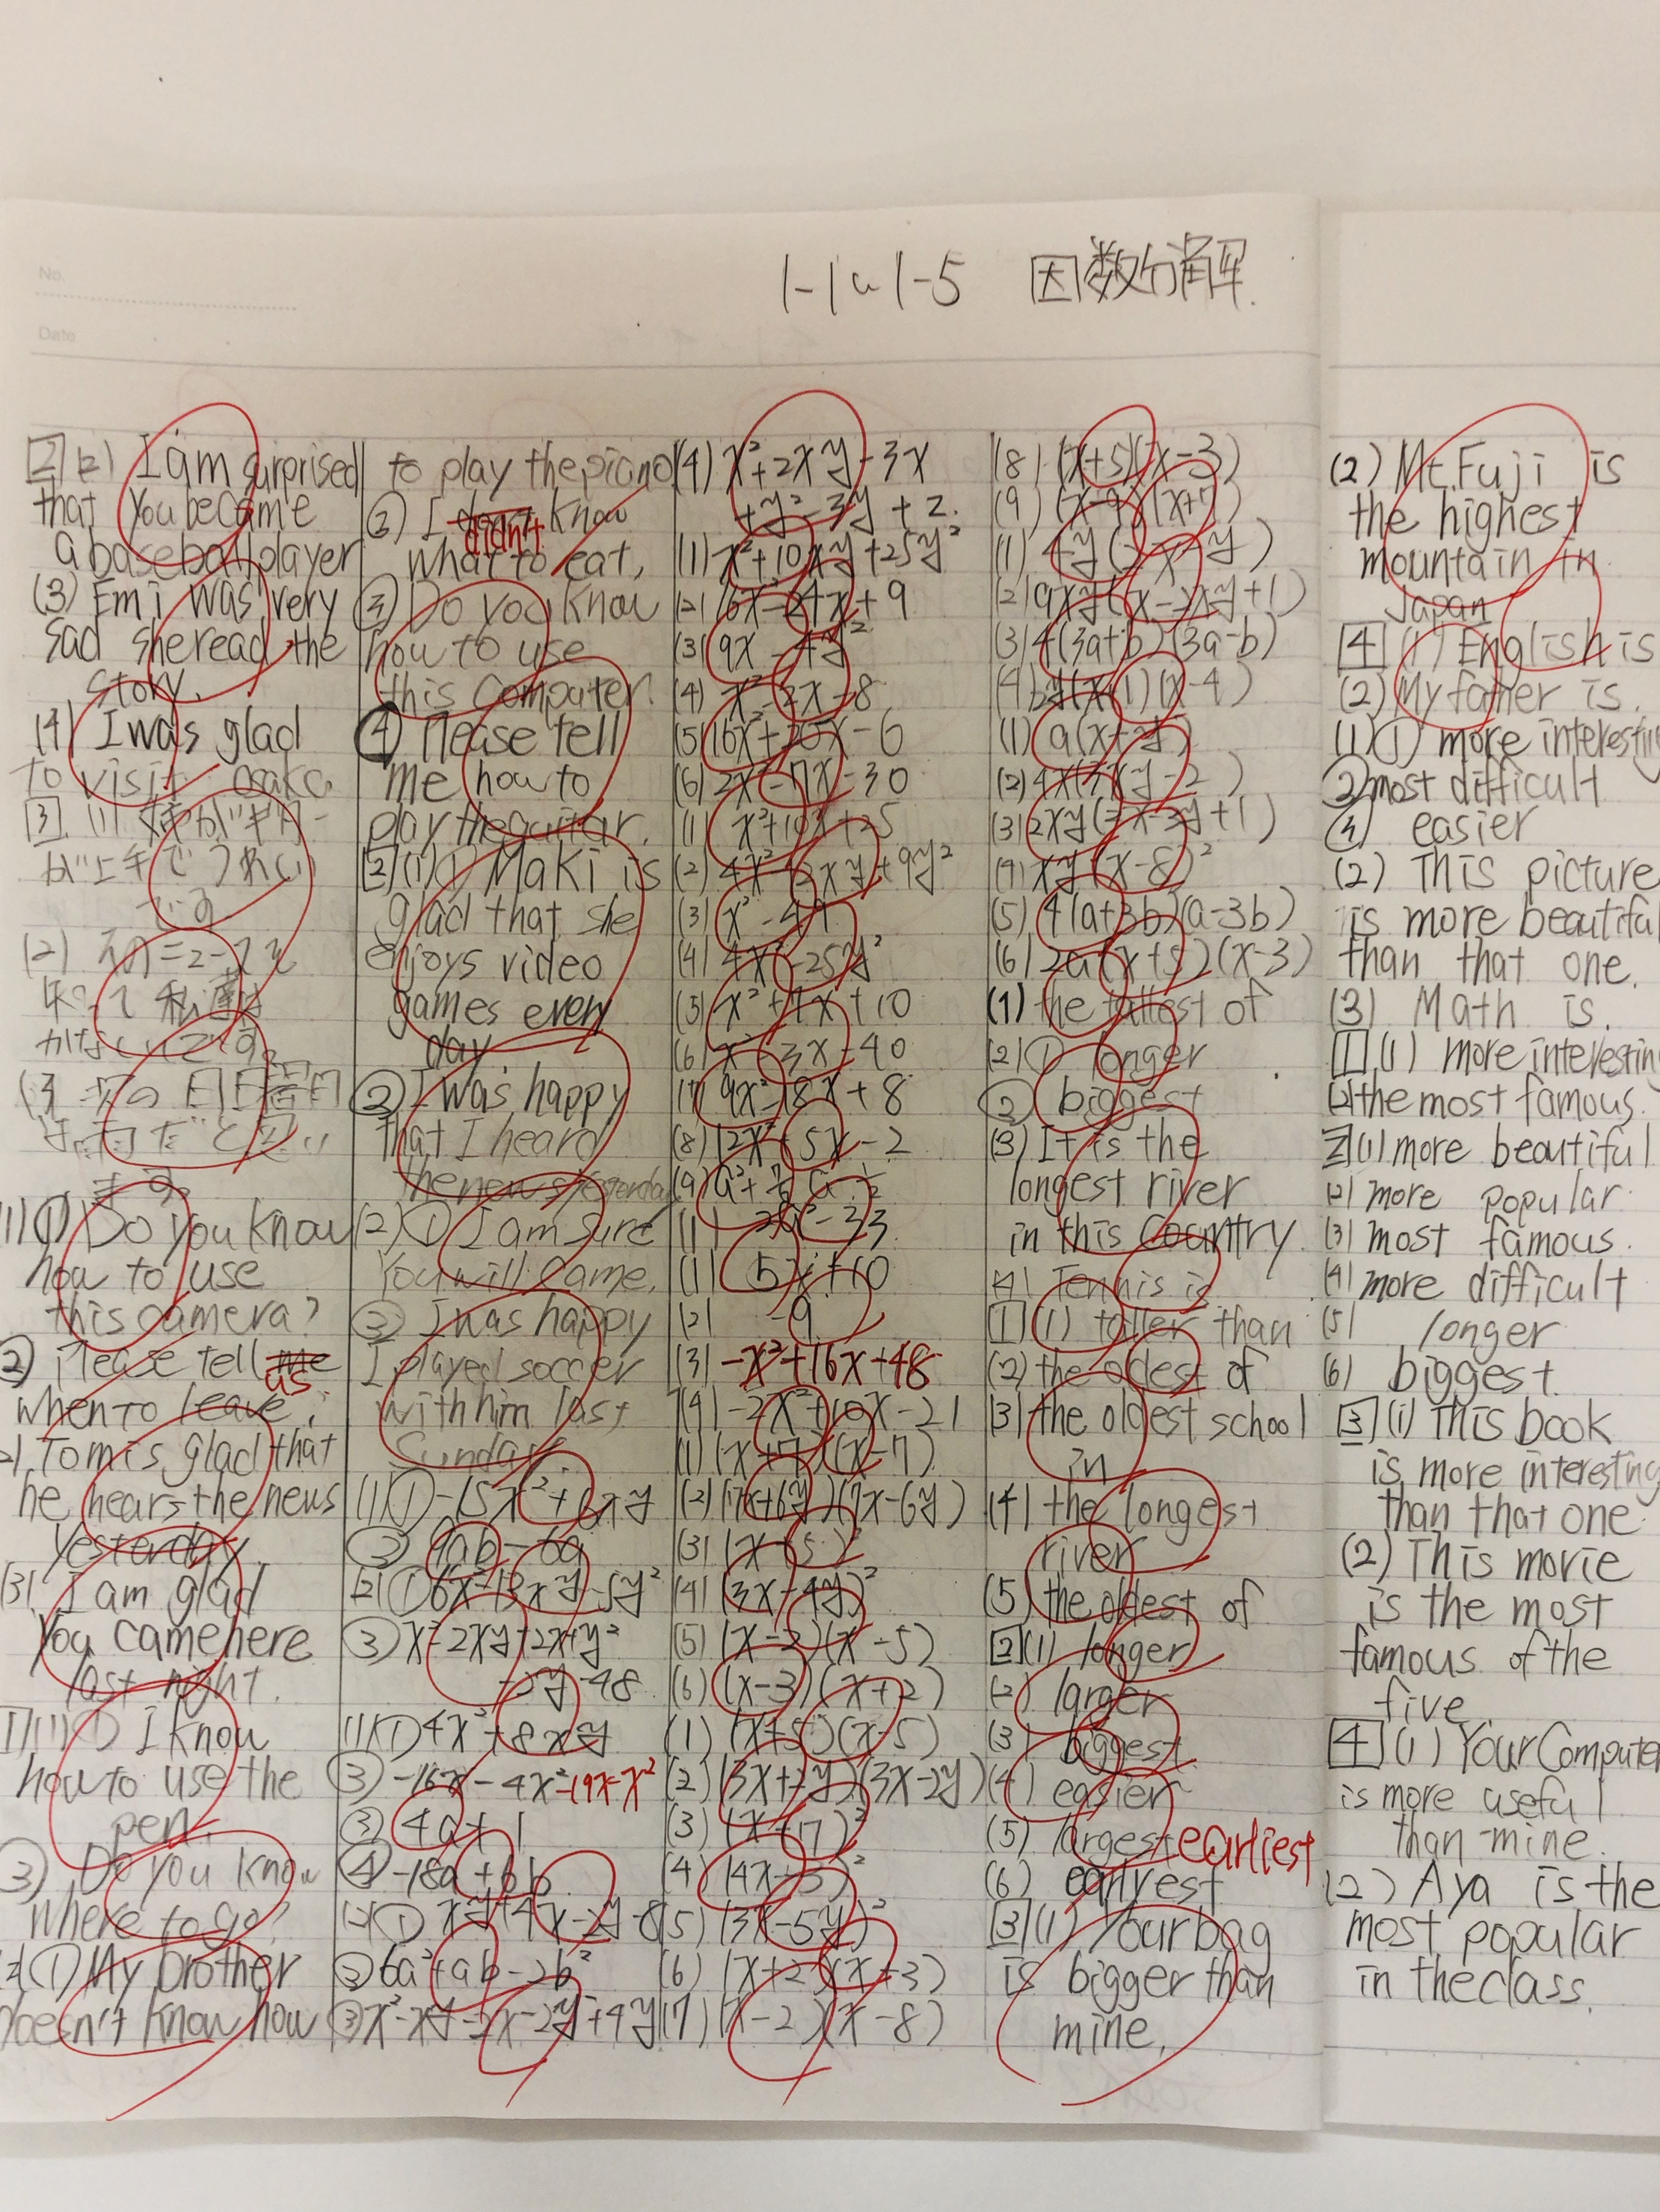 No.
Date
1-1〜1-5 因数分解.
2 (2) I am surprised
that you became
a baseball player
(3) Emi was very
sad she read the
story.
(4) I was glad
to visit Osaka
3 (1)
(2)
(3)
(1) ① Do you know
how to use
this camera?
② Please tell me us
when to leave.
(2) Tom is glad that
he hears the news
yesterday.
(3) I am glad
you came here
last night.
1 (1) ① I know
how to use the
pen.
③ Do you know
where to go?
2 ① My brother
doesn't know how
to play the piano
② I didn't know
what to eat,
③ Do you know
how to use
this computer.
④ Please tell
me how to
play the guitar.
2 (1) ① Maki is
glad that she
enjoys video
games every
day
② I was happy
that I heard
the news yesterday
(2) ① I am sure
you will came.
③ I was happy
I played soccer
with him last
Sunday.
(1) ① -15x²+6xy
(2) ① 6x²-13xy-5y²
③ x²-2xy+2x+y²
-2y-48
(1) ① 4x²+8xy
③ -16x-4x² -19x-x²
③ 4a+1
④ -18a+6b
② 6a²+ab-2b²
(4) x²+2xy-3x
+y²-3y+2.
(1) x²+10xy+25y²
(2) 16x²-24x+9
(3) 9x²-4y²
(4) x²-2x-8
(5) 16x²+20x-6
(1) x²+10x+25
(2) 4x²-12xy+9y²
(3) x²-49
(4) 4x²-25y²
(5) x²+7x+10
(6) x²-3x-40
(7) 9x²-18x+8
(8) 12x²+5x-2
(1) 2x²-33
(1) 5x+10
(2) -9
(3) -x²+16x+48
(4) -2x²+10x-21
(1) (x+7)(x-7)
(2) (7x+6y)(7x-6y)
(3) (x-5)²
(4) (3x-4y)²
(5) (x-2)(x-5)
(6) (x-3)(x+2)
(1) (x+5)(x-5)
(2) (3x+2y)(3x-2y)
(3) (x+7)²
(4) (4x-3)²
(5) (3x-5y)²
(6) (x+2)(x+3)
(7) (x-2)(x-8)
(8) (x+5)(x-3)
(9) (x-9)(x+7)
(3) 4(3a+b)(3a-b)
(4) by(x-1)(x-4)
(3) 2xy(2x-3y+1)
(4) xy(x-8)²
(5) 4(a+3b)(a-3b)
(6) 2a(x+5)(x-3)
(1) the tallest of
(2) ① longer
② biggest
(3) It is the
longest river
in this country.
(4) Tennis is
1 (1) taller than
(2) the oldest of
(3) the oldest school
in
(4) the longest
river
(5) the oldest of
2 (1) longer
(2) larger
(3) biggest
(4) easier
(5) largest earliest
(6) earlyest
3 (1) Your bag
is bigger than
mine.
(2) Mt.Fuji is
the highest
mountain in
Japan
4 (1) English is
(2) My father is.
(1) ① more interesting
② most difficult
④ easier
(2) This picture
is more beautiful
than that one.
(3) Math is.
1 (1) more interesting
(2) the most famous.
2 (1) more beautiful
(2) more popular
(3) most famous.
(4) more difficult
(5) longer
(6) biggest.
3 (1) This book
is more interesting
than that one
(2) This movie
is the most
famous of the
five
4 (1) Your Computer
is more useful
than mine.
(2) Aya is the
most popular
in the class.